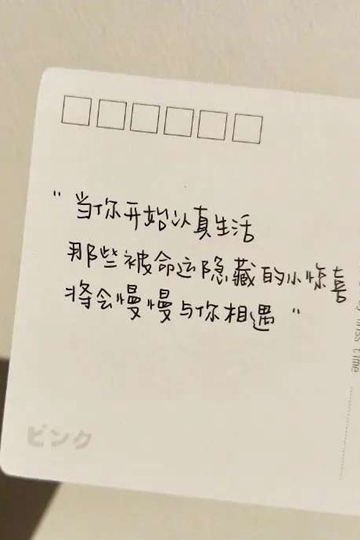 "当你开始认真生活
那些被命运隐藏的小惊喜
将会慢慢与你相遇"
ピンク